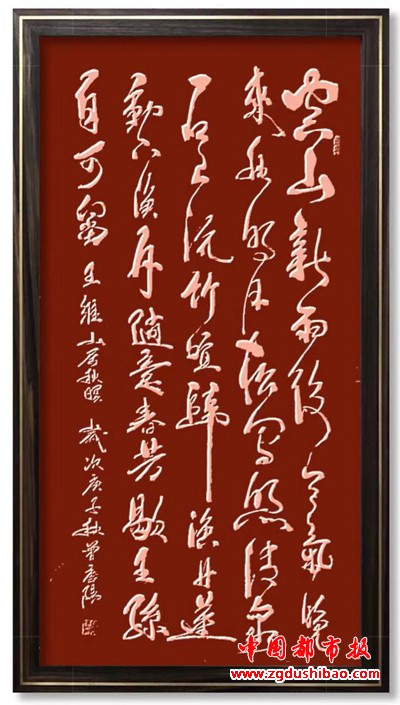 空山新雨後天氣晚
來秋明月松間照清泉
石上流竹喧歸浣女蓮
動下漁舟隨意春芳歇王孫
自可留 王維山居秋暝 歲次庚子秋
中国都市报
www.zgdushibao.com